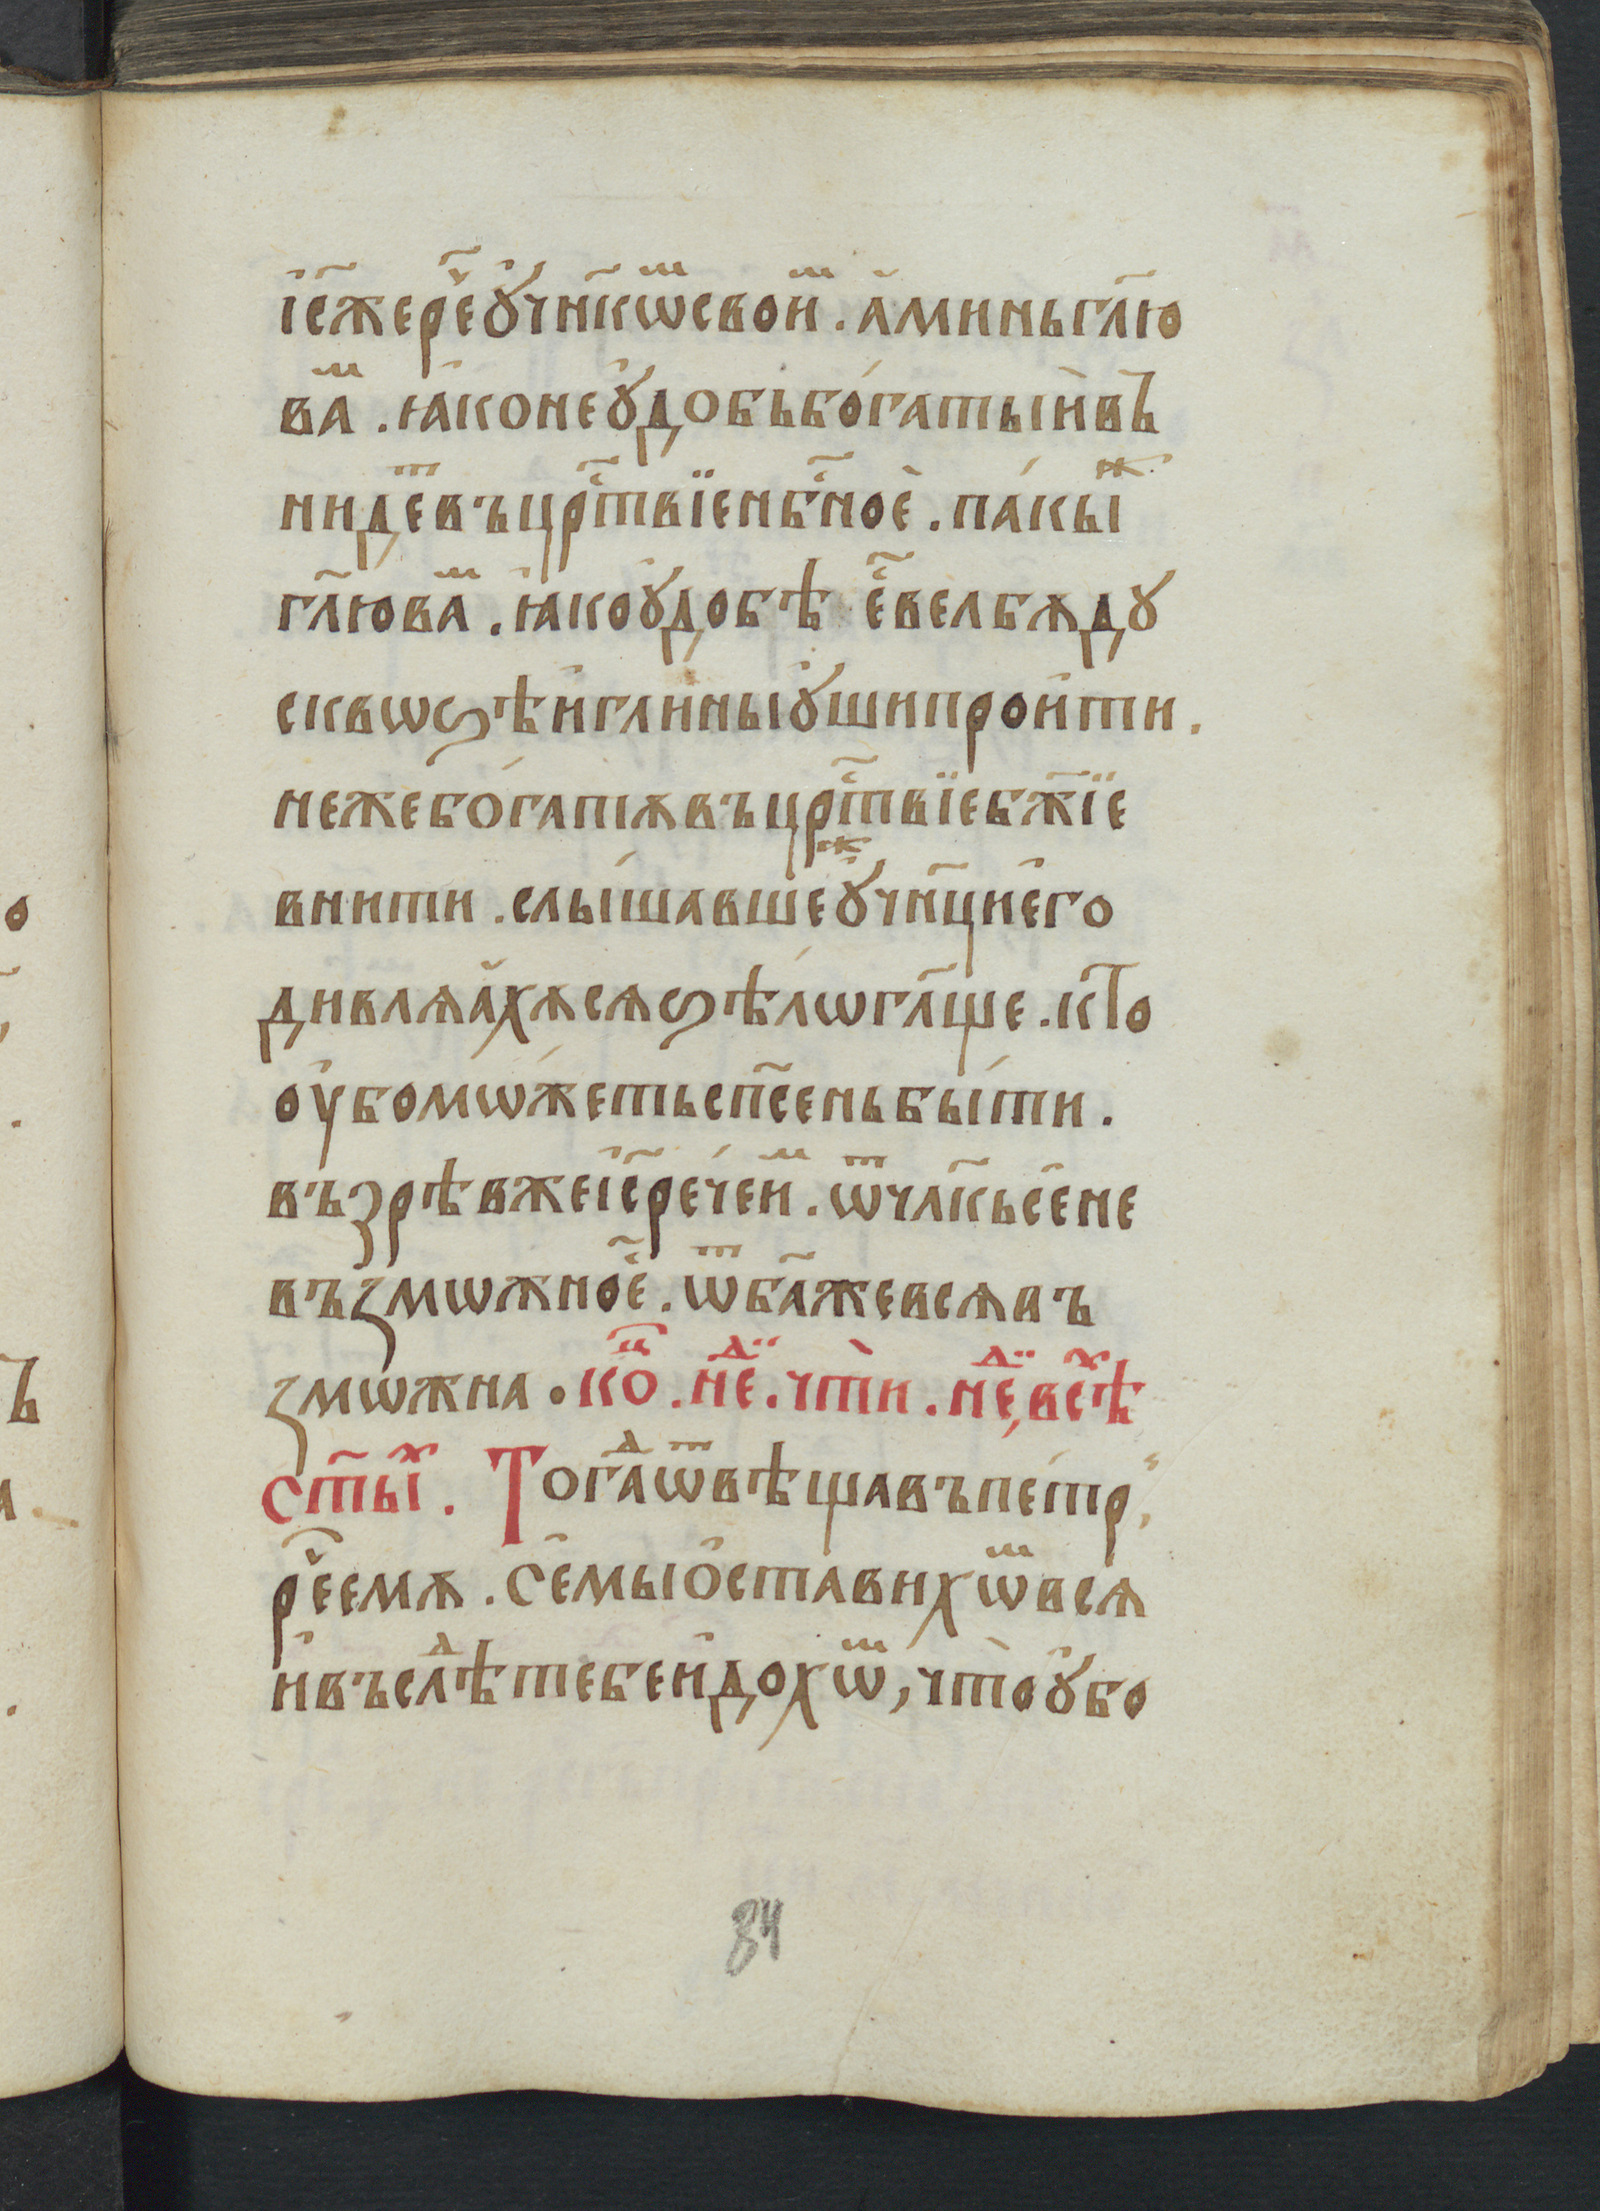 і҃с же рече҇ ᲂу҆чн҃кѡⷨ свои̑ⷨ . а҆минь гл҃ю
ваⷨ . ꙗ҆ко неꙋ҆добь бога́тыи въ
нидеⷮ въ црⷭ҇твїе нбⷭ҇ноѐ . па́кыⷤ
гл҃ю ваⷨ . ꙗ҆ко ꙋ҆добѣ еⷭ҇ велбѫдꙋ
сквѡѕѣ и҆глины ꙋ҆ши проити .
неже бога́тꙋ въ црⷭ҇твїе бж҃їе
внити . слы́шавшеⷤ ꙋ҆чн҃ци е҆го
дивлѧа҆хѫсѧ ѕѣ́лѡ гл҃ще . кто
оу҆бо мѡ́жеть сп҃сень бы́ти .
възрѣв же і҃с рече́ иⷨ . ѿ чл҃кь се не
възмѡжноеⷭ҇ . ѿ ба҃ же всѧ въ
змѡжна . кѡⷩ҇ . неⷣ . чти̏ . неⷣ , всѣⷯ
ст҃ыⷯ . Тогаⷣ ѿвѣщавъ пе́тръ ,
рече҇ емꙋ . се мы о҆ста́вихѡⷨ всѧ
и҆ въслѣⷣ тебе и҆дохѡⷨ , что̀ ꙋ҆бо
84